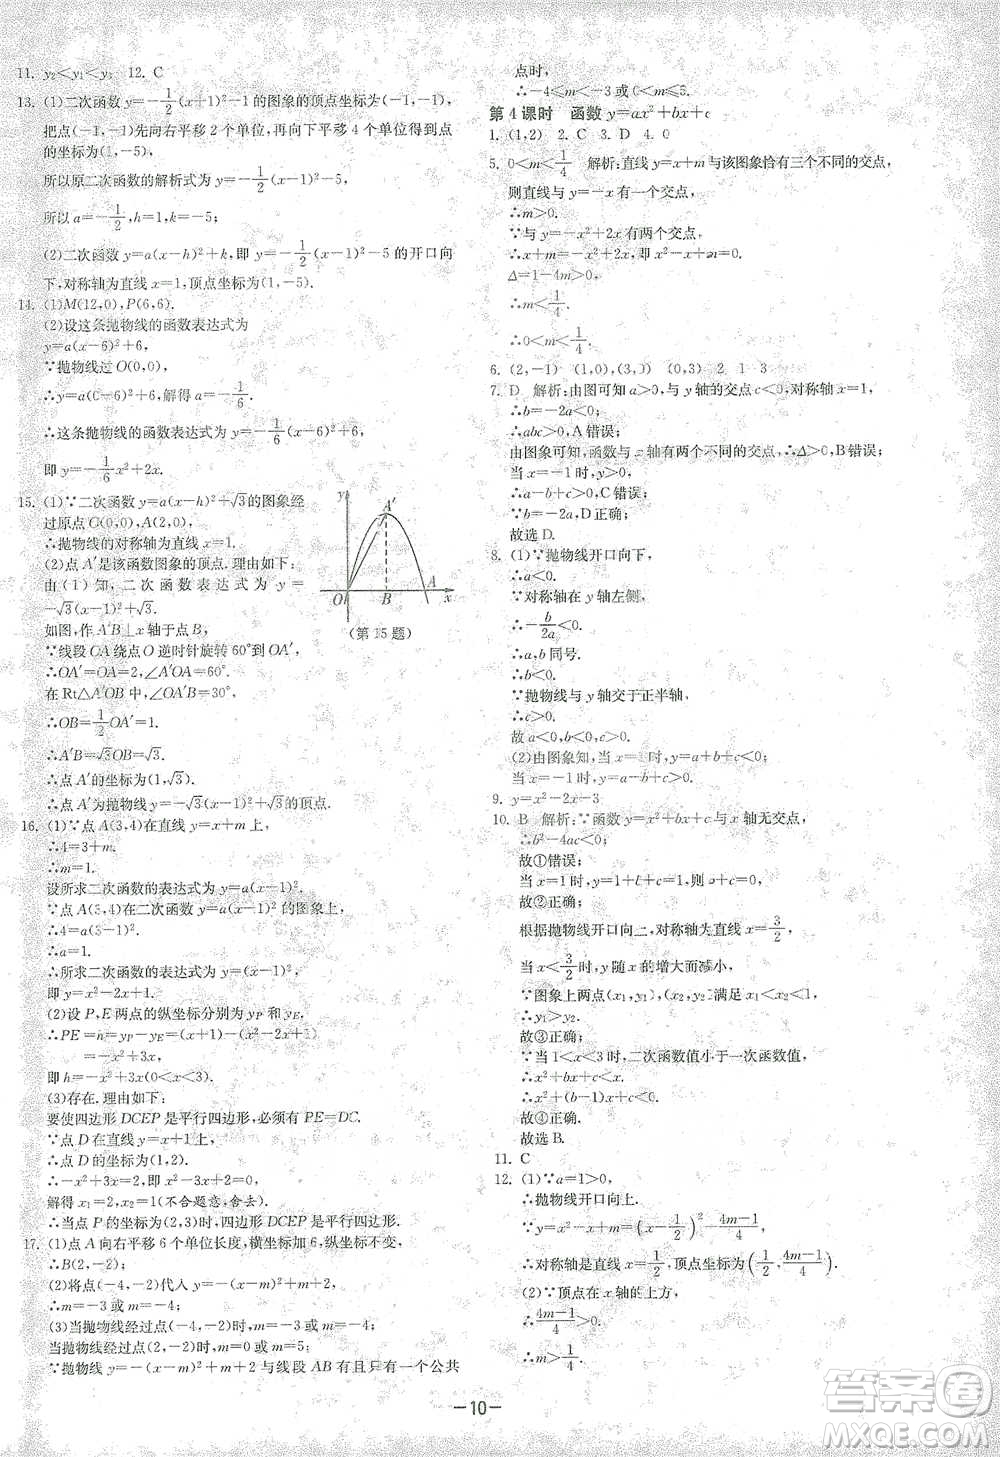 11. y₂<y₁<y₃  12. C
13. (1)二次函数 y=-1/2(x+1)²-1的图象的顶点坐标为(-1,-1),
把点(-1,-1)先向右平移2个单位,再向下平移4个单位得到点
的坐标为(1,-5),
所以原二次函数的解析式为 y=-1/2(x-1)²-5,
所以 a=-1/2,h=1,k=-5;
(2)二次函数 y=a(x-h)²+k,即 y=-1/2(x-1)²-5的开口向
下,对称轴为直线 x=1,顶点坐标为(1,-5).
14. (1)M(12,0),P(6,6).
(2)设这条抛物线的函数表达式为
y=a(x-6)²+6,
∵抛物线过O(0,0),
∴y=a(0-6)²+6,解得 a=-1/6.
∴这条抛物线的函数表达式为 y=-1/6(x-6)²+6,
即 y=-1/6x²+2x.
15. (1)∵二次函数 y=a(x-h)²+√3的图象经
过原点O(0,0),A(2,0),
∴抛物线的对称轴为直线 x=1.
(2)点A′是该函数图象的顶点.理由如下:
由(1)知,二次函数表达式为 y=
-√3(x-1)²+√3.
如图,作A′B⊥x轴于点B,
∵线段OA绕点O逆时针旋转60°到OA′,
∴OA′=OA=2,∠A′OA=60°.
在Rt△A′OB中,∠OA′B=30°,
∴OB=1/2OA′=1.
∴A′B=√3OB=√3.
∴点A′的坐标为(1,√3).
∴点A′为抛物线 y=-√3(x-1)²+√3的顶点.
y A′ O B A x
(第15题)
16. (1)∵点A(3,4)在直线 y=x+m上,
∴4=3+m.
∴m=1.
设所求二次函数的表达式为 y=a(x-1)².
∵点A(3,4)在二次函数 y=a(x-1)²的图象上,
∴4=a(3-1)².
∴a=1.
∴所求二次函数的表达式为 y=(x-1)².
即 y=x²-2x+1.
(2)设P,E两点的纵坐标分别为 yP 和 yE,
∴PE=h=yP-yE=(x+1)-(x²-2x+1)
=-x²+3x,
即 h=-x²+3x(0<x<3).
(3)存在.理由如下:
要使四边形DCEP是平行四边形,必须有PE=DC.
∵点D在直线 y=x+1上,
∴点D的坐标为(1,2).
∴-x²+3x=2.
解得 x₁=2,x₂=1(不合题意,舍去).
∴当点P的坐标为(2,3)时,四边形DCEP是平行四边形.
17. (1)点A向右平移6个单位长度,横坐标加6,纵坐标不变,
∴B(2,-2);
(2)将点(-4,-2)代入 y=-(x-m)²+m+2,
∴m=-3或m=-4;
(3)当抛物线经过点(-4,-2)时,m=-3或m=-4;
当抛物线经过点(2,-2)时,m=0或m=5;
∵抛物线 y=-(x-m)²+m+2与线段AB有且只有一个公共
点时,
∴-4≤m<-3或0<m≤5.
第4课时 函数 y=ax²+bx+c
1. (1,2)  2. C  3. D  4. 0
5. 0<m<1/4  解析:直线 y=x+m与该图象恰有三个不同的交点,
则直线与 y=-x有一个交点,
∴m>0.
∵与 y=-x²+2x有两个交点,
∴x+m=-x²+2x,即 x²-x+m=0.
Δ=1-4m>0.
∴m<1/4.
∴0<m<1/4.
6. (2,-1)  (1,0),(3,0)  (0,3)  2  1  3
7. D  解析:由图可知 a>0,与y轴的交点 c<0,对称轴 x=1,
∴b=-2a<0;
∴abc>0,A错误;
由图象可知,函数与x轴有两个不同的交点,∴Δ>0,B错误;
当 x=-1时,y>0,
∴a-b+c>0,C错误;
∵b=-2a,D正确;
故选D.
8. (1)∵抛物线开口向下,
∴a<0.
∵对称轴在y轴左侧,
∴-b/2a<0.
∴a,b同号.
∴b<0.
∵抛物线与y轴交于正半轴,
∴c>0.
故 a<0,b<0,c>0.
(2)由图象知,当 x=1时,y=a+b+c<0;
当 x=-1时,y=a-b+c>0.
9. y=x²-2x-3
10. B  解析:∵函数 y=x²+bx+c与x轴无交点,
∴b²-4c<0.
故①错误;
当 x=1时,y=1+b+c=1,则b+c=0,
故②正确,
根据抛物线开口向上,对称轴为直线 x=3/2,
当 x<3/2时,y随x的增大而减小,
∵图象上两点(x₁,y₁),(x₂,y₂)满足 x₁<x₂<1,
∴y₁>y₂.
故③正确;
∵当1<x<3时,二次函数值小于一次函数值,
∴x²+bx+c<x.
∴x²+(b-1)x+c<0.
故④正确.
故选B.
11. C
12. (1)∵a=1>0,
∴抛物线开口向上.
∵y=x²-x+m=(x-1/2)²+(4m-1)/4,
∴对称轴是直线 x=1/2,顶点坐标为(1/2,(4m-1)/4).
(2)∵顶点在x轴的上方,
∴(4m-1)/4>0.
∴m>1/4.
—10—
答案圈
MXQE.COM